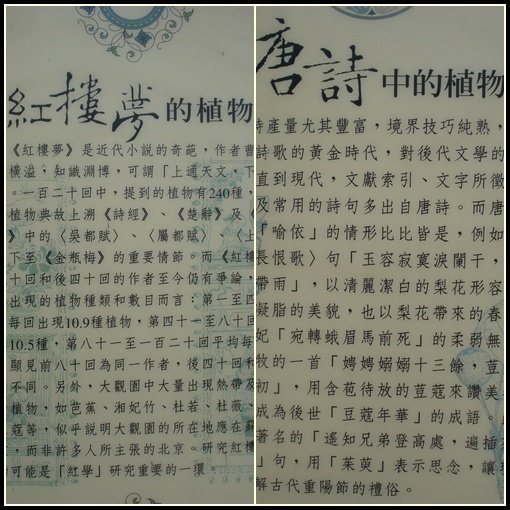 紅樓夢的植物
《紅樓夢》是近代小說的奇葩，作者曹
橫溢。知識淵博，可謂「上通天文，下
。一百二十回中，提到的植物有240種，
植物典故上溯《詩經》、《楚辭》及《
》中的〈吳都賦〉、〈屬都賦〉、〈上
下至《金瓶梅》的重要情節。而《紅樓
十回和後四十回的作者至今仍有爭論，
出現的植物種類和數目而言：第一至四
每回出現10.9種植物，第四十一至八十回
10.5種，第八十一至一百二十回平均每
顯見前八十回為同一作者，後四十回和
不同。另外，大觀園中大量出現熱帶及
植物，如芭蕉、湘妃竹、杜若、杜薇、
蔻等，似乎說明大觀園的所在地應在蘇
，而非許多人所主張的北京。研究紅樓
可能是「紅學」研究重要的一環。
唐詩中的植物
詩產量尤其豐富，境界技巧純熟，
詩歌的黃金時代，對後代文學的
直到現代，文獻索引、文字所徵
及常用的詩句多出自唐詩。而唐
「喻依」的情形比比皆是，例如
長恨歌〉句「玉容寂寞淚闌干，
帶雨」，以清麗潔白的梨花形容
凝脂的美貌，也以梨花帶來的春
妃「宛轉蛾眉馬前死」的柔弱無
牧的一首「娉娉嫋嫋十三餘，荳
初」，用含苞待放的荳蔻來讚美
成為後世「豆蔻年華」的成語。
著名的「遙知兄弟登高處，遍插
」句，用「茱萸」表示思念，讓
解古代重陽節的禮俗。